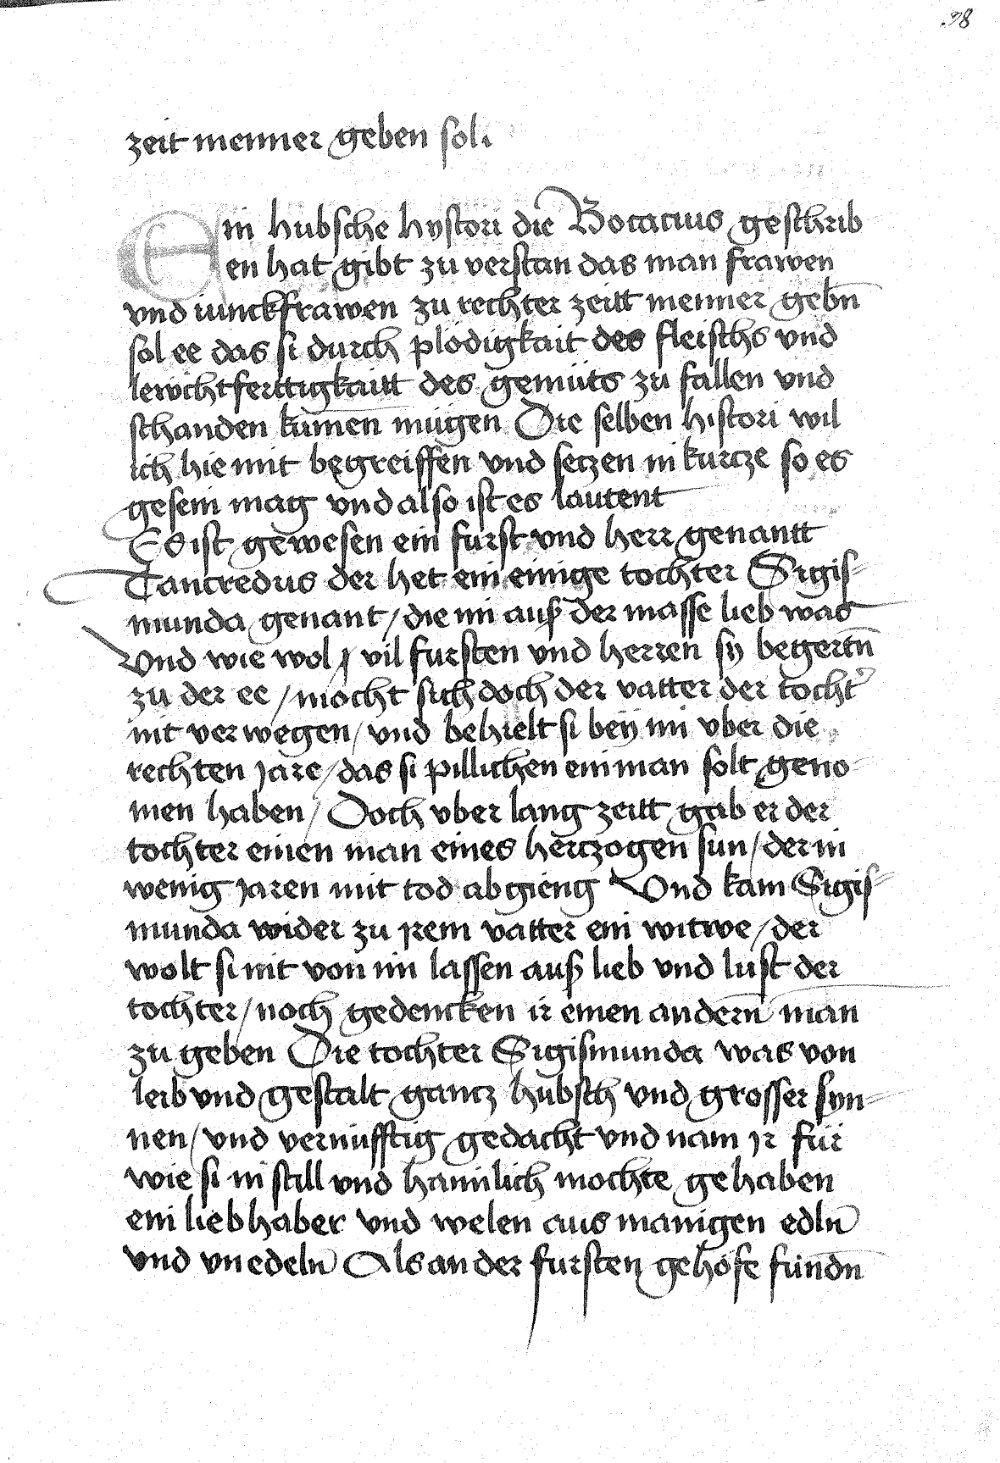 38
zeit menner geben sol.
Ein hubsche hystori die Bocacius geschrib
en hat gibt zu verstan das man frawen
vnd iunckfrawen zu rechter zeitt menner gebn̄
sol ee das si durch plödigkait des fleischs vnd
leichtferttigkaitt des gemüts zu fallen vnd
schanden kūmen mügen Die selben histori wil
ich hie mit begreiffen vnd setzen in kurcze so es
gesein mag vnd also ist es lautent
Es ist gewesen ein fürst vnd herr genantt
Tancredus der het ein einige tochter Sigis-
munda genant / die im auß der masse lieb was
Vnd wie wol vil fursten vnd herren sy begertn̄
zu der ee / mocht sich doch der vatter der tocht̉
nit verwegen / vnd behielt si beÿ im vber die
rechten jare / das si pillichen ein man solt geno-
men haben / Doch vber lang zeitt gab er der
tochter einen man eines herczogen sun / der in
wenig jaren mit tod abgieng Vnd kam Sigis-
munda wider zu jrem vatter ein witwe / der
wolt si nit von im lassen auß lieb vnd lust der
tochter / noch gedencken ir einen andern̄ man
zu geben Die tochter Sigismunda was von
leib vnd gestalt gancz hübsch vnd grosser syn-
nen / vnd vernüfftig gedacht vnd nam jr für
wie si in still vnd haimlich mochte gehaben
ein liebhaber vnd welen aus manigen edln̄
vnd vnedeln̄ Als an der fursten gehöfe fündn̄